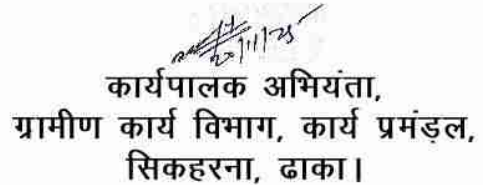 20/11/25
कार्यपालक अभियंता,
ग्रामीण कार्य विभाग, कार्य प्रमंडल,
सिकहरना, ढाका।